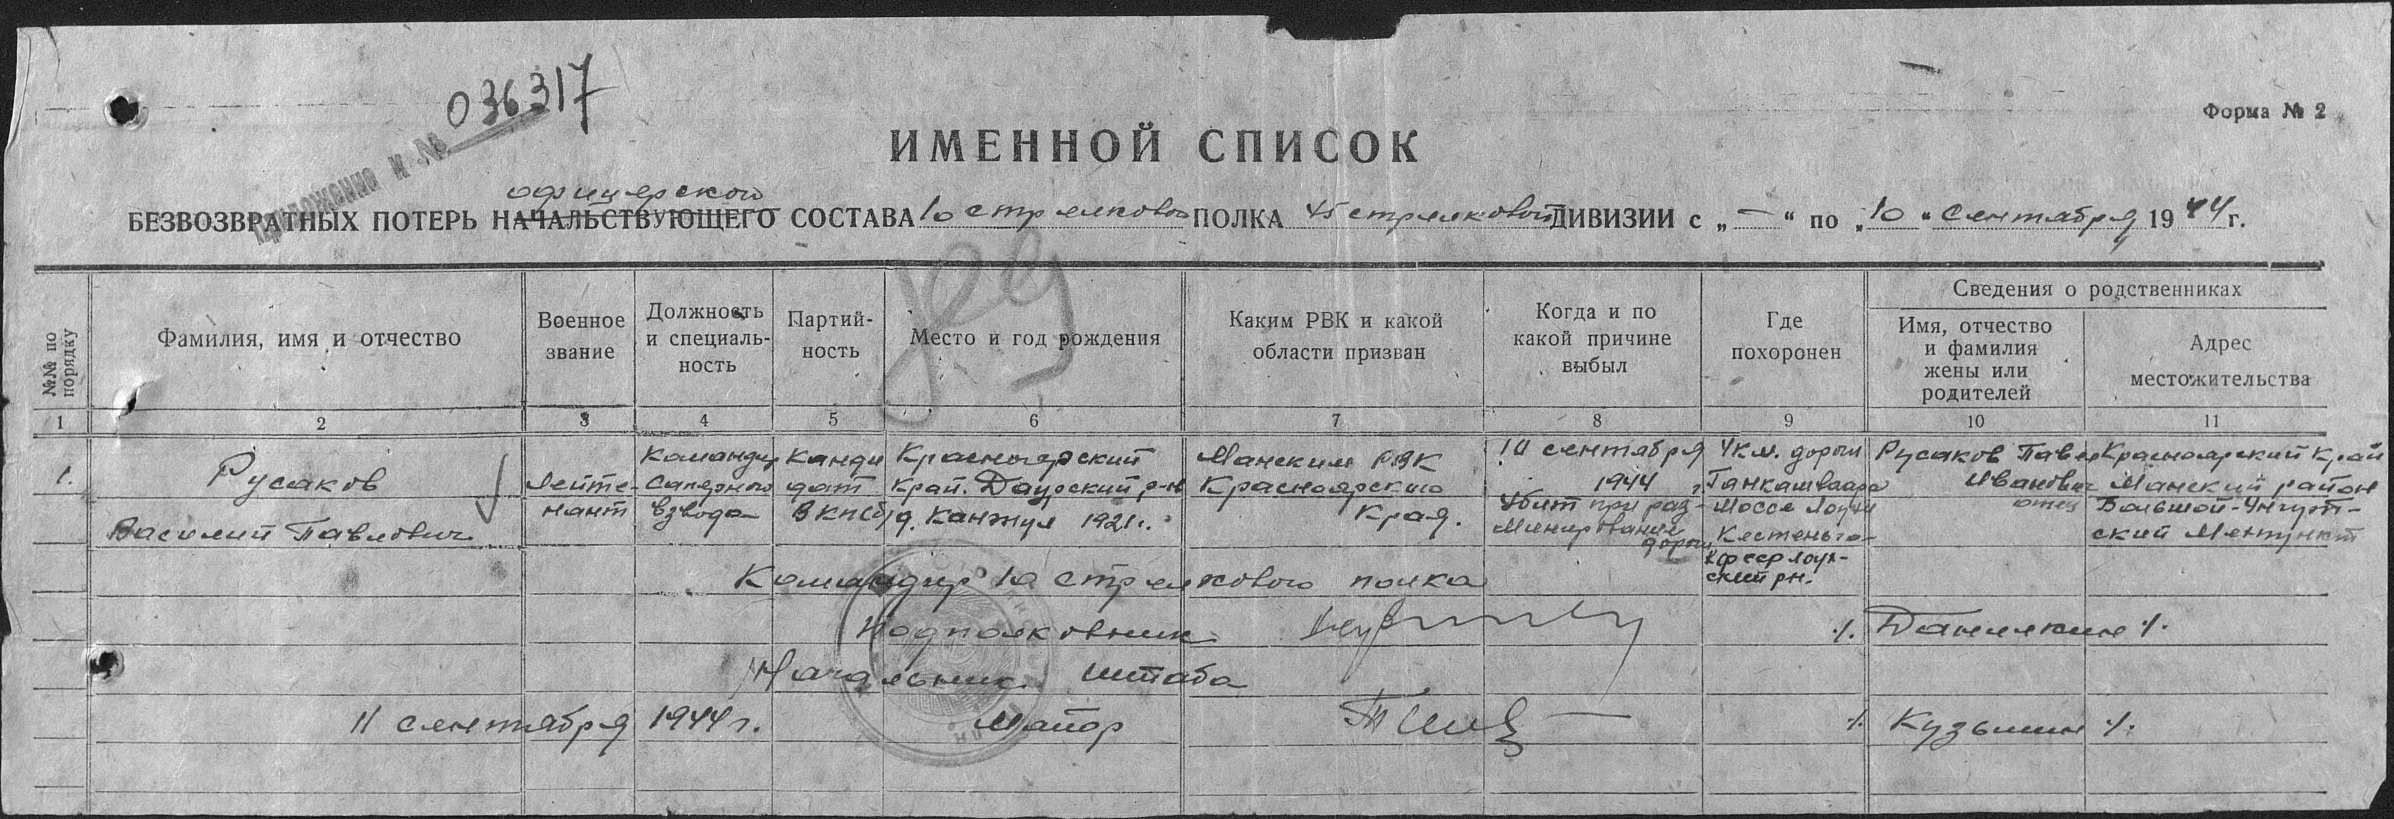 036317
Приложение к №
Форма № 2
ИМЕННОЙ СПИСОК
офицерского
БЕЗВОЗВРАТНЫХ ПОТЕРЬ НАЧАЛЬСТВУЮЩЕГО СОСТАВА 10 стрелкового ПОЛКА 45 стрелковой ДИВИЗИИ с „ — “ по „ 10 “ сентября 19 44 г.
№№ по порядку
Фамилия, имя и отчество
Военное
звание
Должность
и специаль-
ность
Партий-
ность
Место и год рождения
Каким РВК и какой
области призван
Когда и по
какой причине
выбыл
Где
похоронен
Сведения о родственниках
Имя, отчество
и фамилия
жены или
родителей
Адрес
местожительства
1 2 3 4 5 6 7 8 9 10 11
1.
Русаков
Василий Павлович
Лейте-
нант
Командир
Саперного
взвода
Канди
дат
ВКП(б)
Красноярский
край. Даурский р-н
д. Канжул 1921г.
Манским РВК
Красноярского
Края.
10 сентября
1944 г.
Убит при раз-
минировании
дороги
4 км. дороги
Ганкашваара
Кестеньга-
Русаков Павел
Иванович
отец
Красноярский край
Манский район
Большой-Унгут-
ский
Командир 10 стрелкового полка
Подполковник
/. Данилкин /.
Начальник штаба
11 сентября 1944 г. Майор
/. Кузьмин /.